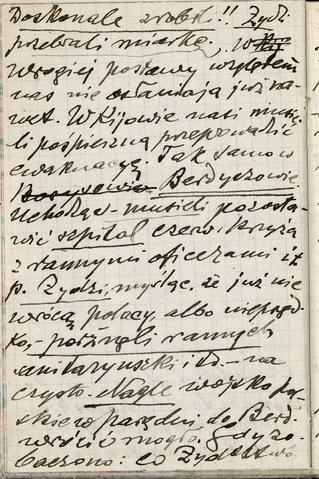 Doskonale zrobił!! Żydzi
przebrali miarkę, w
wrogiej postawy względem
nas nie osłaniają już na-
wet. W Kijowie nasi musie-
li pośpieszną przeprowadzić
ewakuację. Tak samo w
Berdyczowie.
Uchodząc musieli pozosta-
wić szpital czerw. krzyża
z rannymi oficerami i t.
p. Żydzi, myśląc, że już nie
wrócą polacy, albo niepręd-
ko, – porżnęli rannych
sanitaryuszki i t.d. – na
czysto. Nagle wojsko pol-
skie w parę dni do Berd.
wrócić mogło. Gdy zo-
baczono: co Żydostwo